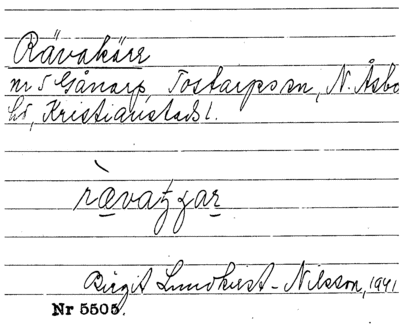 Rävakärr
nr 5 Gånarp, Tostarps sn, N. Åsbo
hd, Kristianstads l.
Birgit Lundkvist-Nilsson, 1941
Nr 5505.